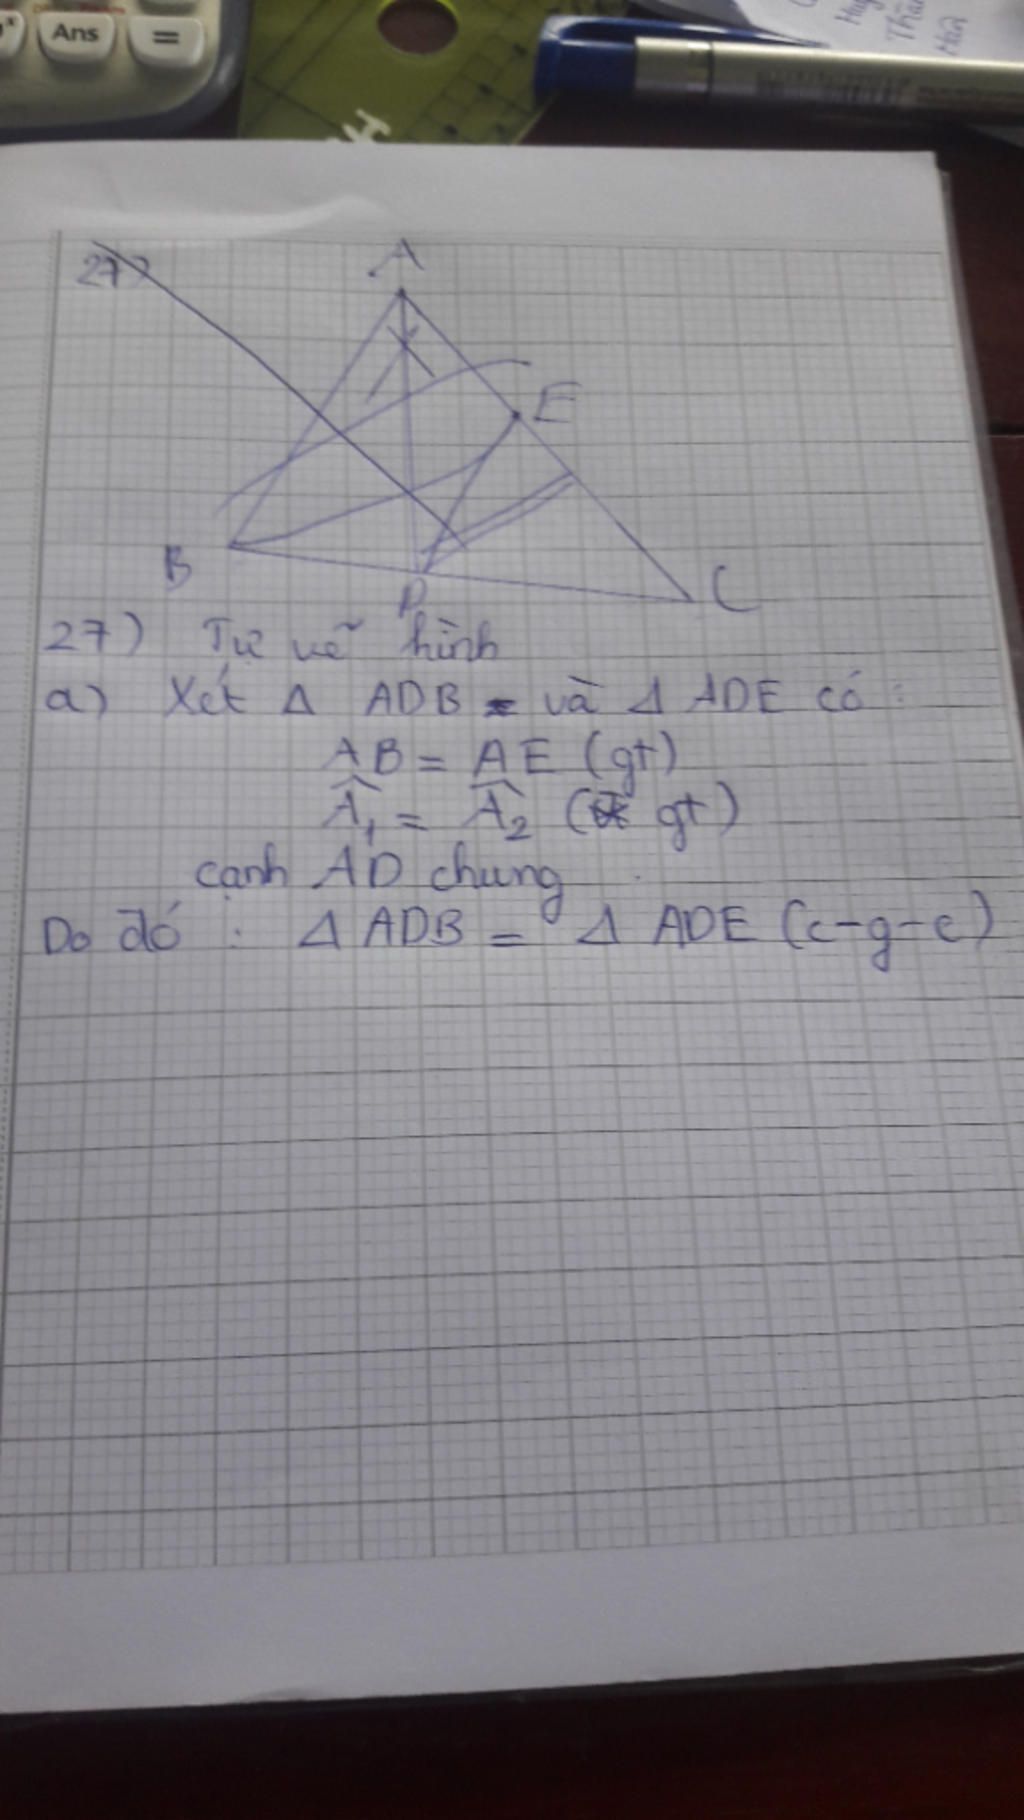 Ans
=
27)
A
E
B
D
C
27) Tự vẽ hình
a) Xét Δ ADB và Δ ADE có :
AB = AE (gt)
Â₁ = Â₂ (gt)
cạnh AD chung
Do đó : Δ ADB = Δ ADE (c-g-c)